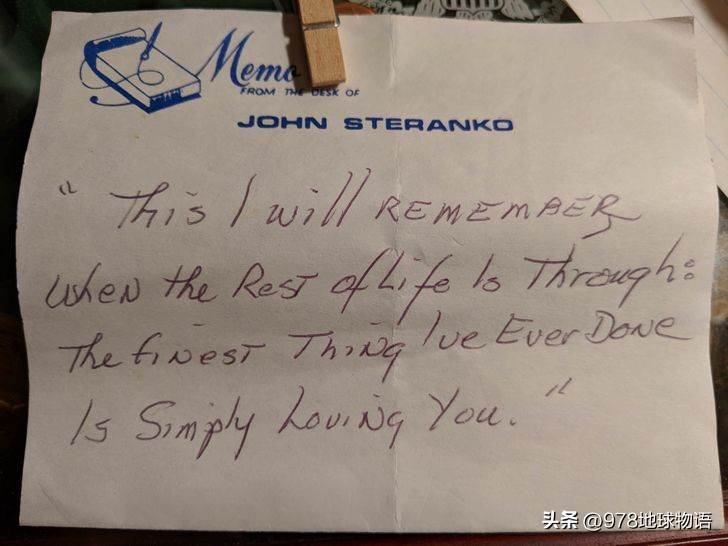 Memo
FROM THE DESK OF
JOHN STERANKO
" This I will REMEMBER
When the Rest of Life Is Through:
The Finest Thing I've Ever Done
Is Simply Loving You. "
头条 @978地球物语